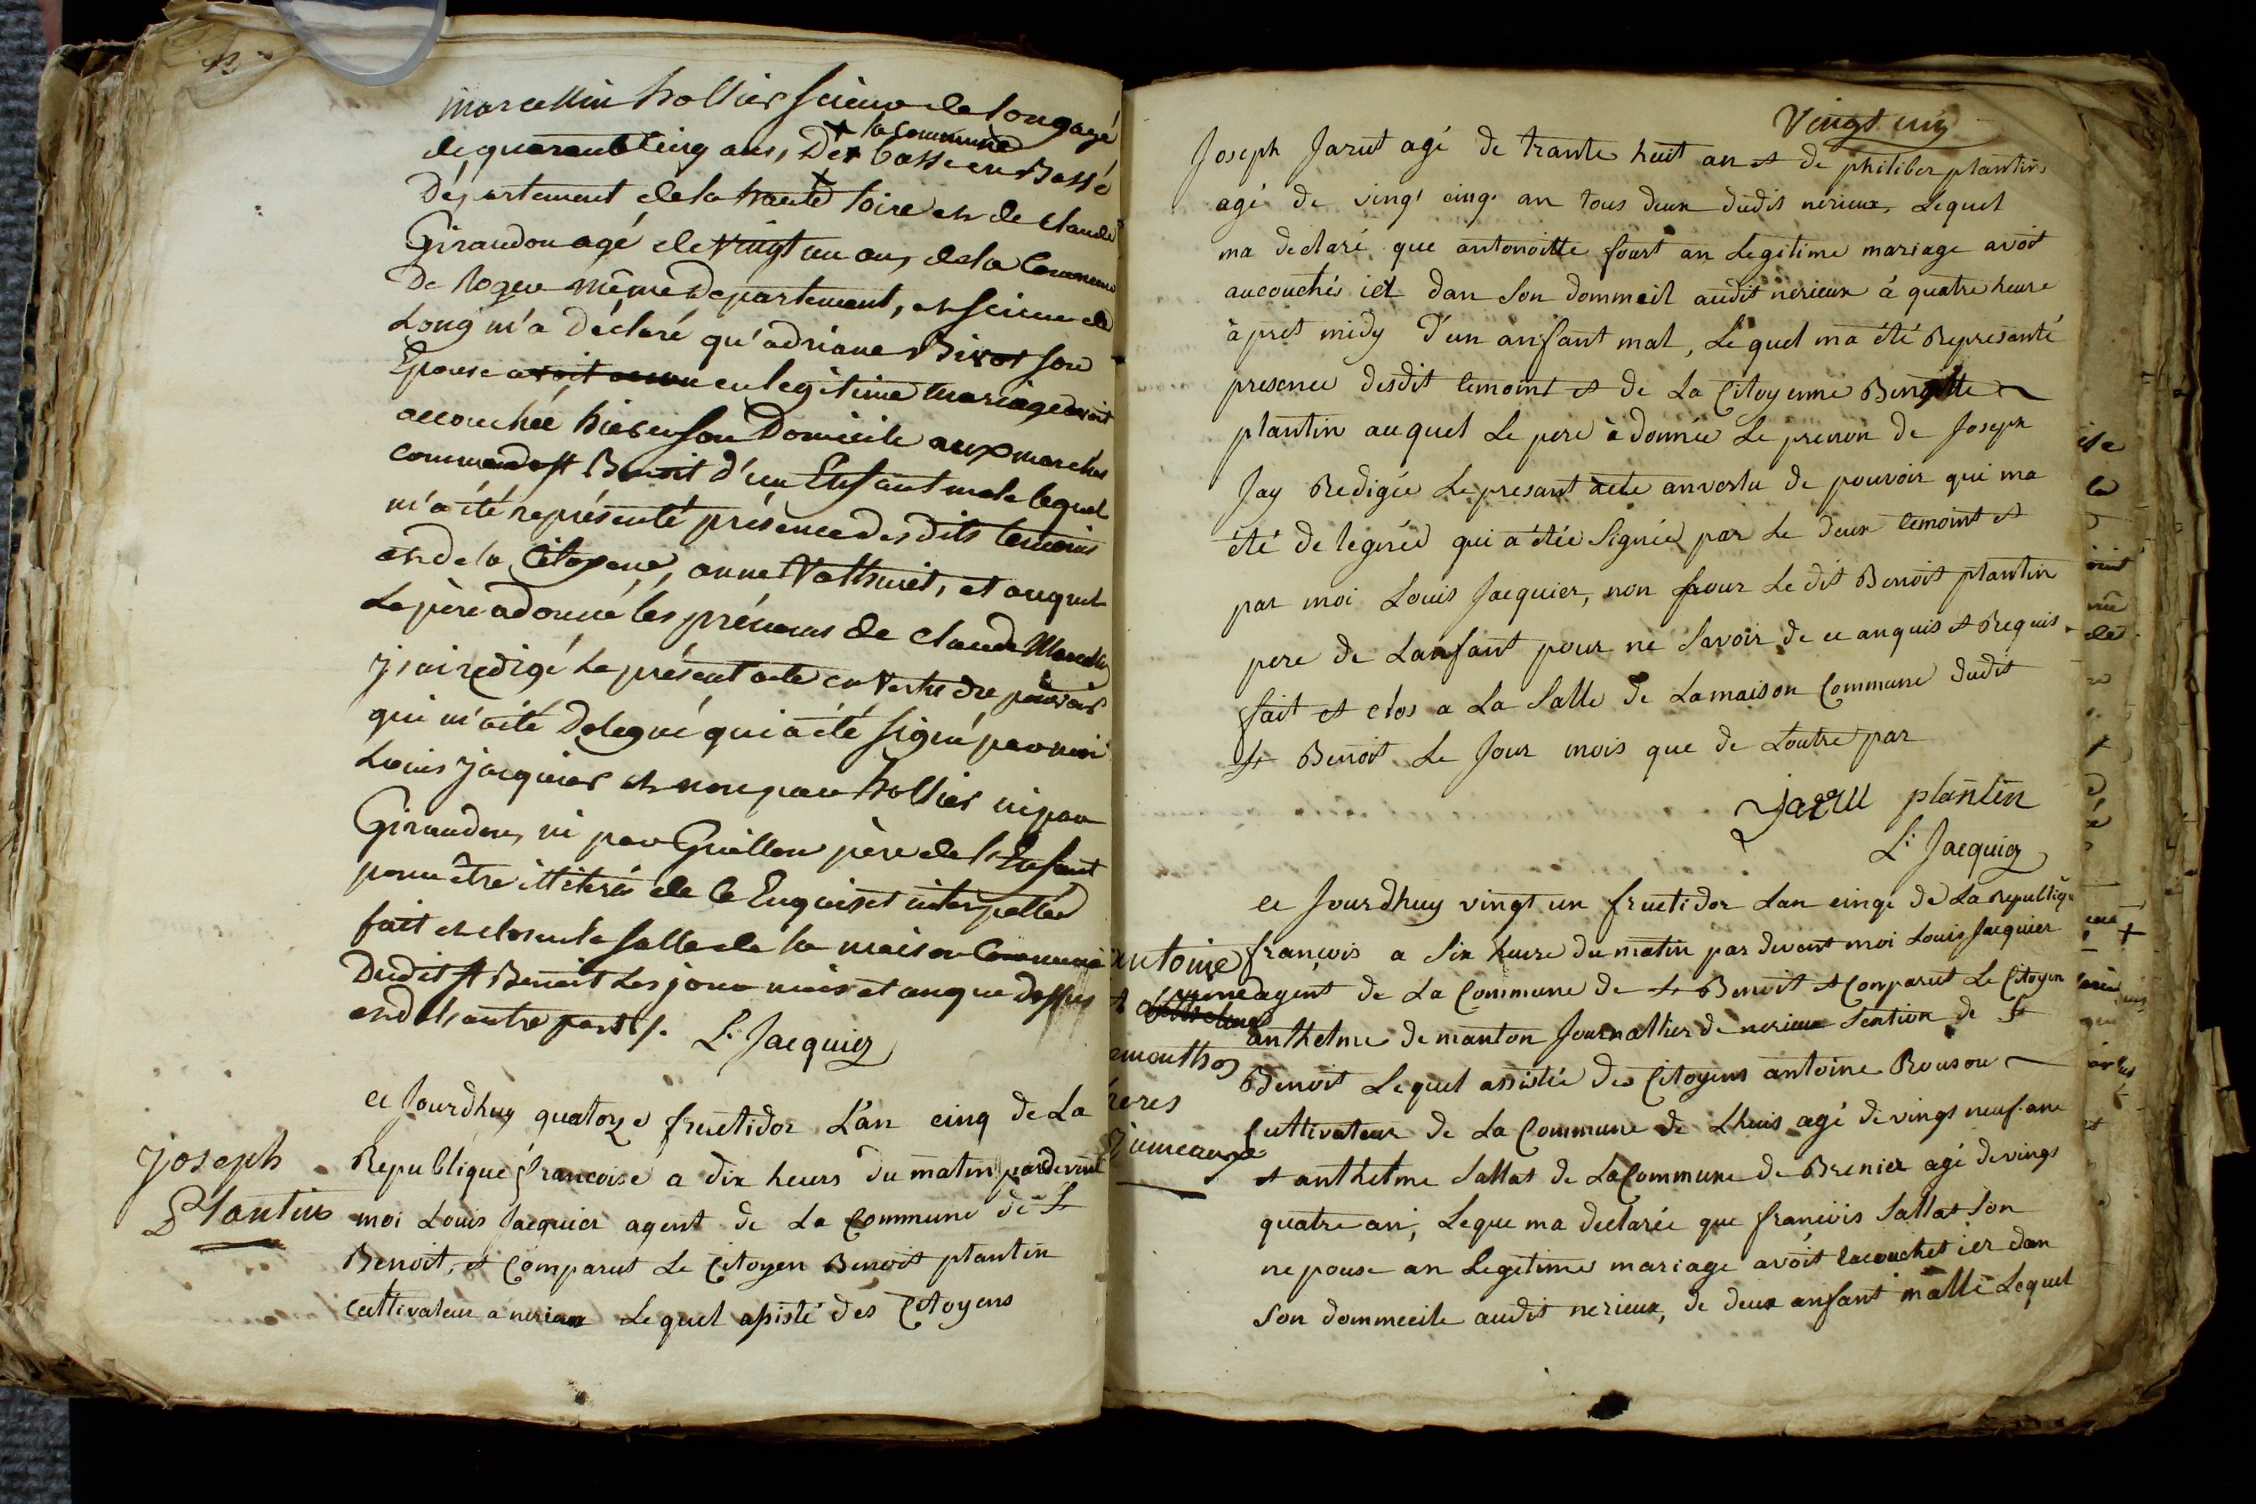 marcellin hollier scieur de long agé
de quarante cinq ans, De la Commune
Basse en Bassé
Département de la haute loire et de claude
Giraudon agé de vingt un ans, de la Commune
De même Departement, et scieur de
Long m'a déclaré qu'adriane son
Epouse en legitime mariage avoit
accouchée hier en son Domicile aux marches
commune de st Benoit d'un Enfant male lequel
m'a été représenté présence des dits temoins
et de la Citoyene, anne Vathuret, et auquel
Le père a donné les prénoms de claude Marcellin
J'ai redigé le présent acte en vertu des pouvoirs
qui m'a été delegué qui a été signé par moi
Louis jacquier et non par hollier ni par
Giraudon, ni par Guillon père de l'Enfant
pour être illiterés de ce Enquis et interpellés
fait et clos en la salle de la maison Commune
Dudit st Benoit Les jour mois et an que dessus
et d'autre part /. L. Jacquier
Joseph
Plantin
ce Jourdhuy quatorze fructidor L'an cinq de La
Republique francoise a dix heurs du matin pardevant
moi Louis Jacquier agent de La Commune de St
Benoit, et Comparut Le Citoyen Benoit plantin
Cultivateur a nerieux Lequel asisté des Citoyens
Vingt un
Joseph Jarut agé de trante huit an et de philiber plantin
agé de vingt cinq an tous deux dudit nerieux, Lequel
ma declaré que antonoitte fourt an Legitime mariage avoit
aucouchés ier dan son dommeil audit nerieux á quatre heure
àpret midy D'un anfant mal, Lequel ma été Represanté
presence desdit temoint et de La Citoyenne Benoitte
plantin auquel Le pere à donnée Le prenon de Joseph
Jay Redigée Le presant acte anvertu de pouvoir qui ma
été delegeréé qui a étée Signée par Le deux temoint et
par moi Louis Jacquier, non pour Ledit Benoit plantin
pere de Lanfant pour ne Savoir de ce anquis et Requis
fait et clos a La Salle de Lamaison Commune dudit
St Benoit Le Jour mois que de Loutre par
Jarru plantin
L. Jacquier
antoine
et anthelme
demonthon
frères
Jumeaux
ce Jourdhuy vingt un fructidor Lan cinqe de La Republiqe
françois a six heure du matin par devent moi Louis Jacquier
agent de La Commune de St Benoit et Comparut Le Citoyen
anthelme de manton Journallier de nerieux Sention de St
Benoit Lequel assistée des Citoyens antoine Rouson
Cultivateur de La Commune de Lhuis agé de vingt neuf ans
et anthelme Sallat de La Commune de Brenier agé de vingt
quatre an, Leque ma declarée que francois Sallat Son
nepouse an Legitime mariage avoit lacouchet ier dan
Son dommecile audit nerieux, de deux anfant malle Lequel